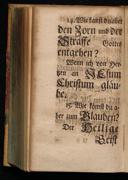 14. Wie kanst du aber
den Zorn und der
Straffe Gottes
entgehen?
Wenn ich von Her-
tzen an JEsum
Christum gläu-
be.
15. Wie komst du a-
ber zum Glauben?
Der Heilige
Geist